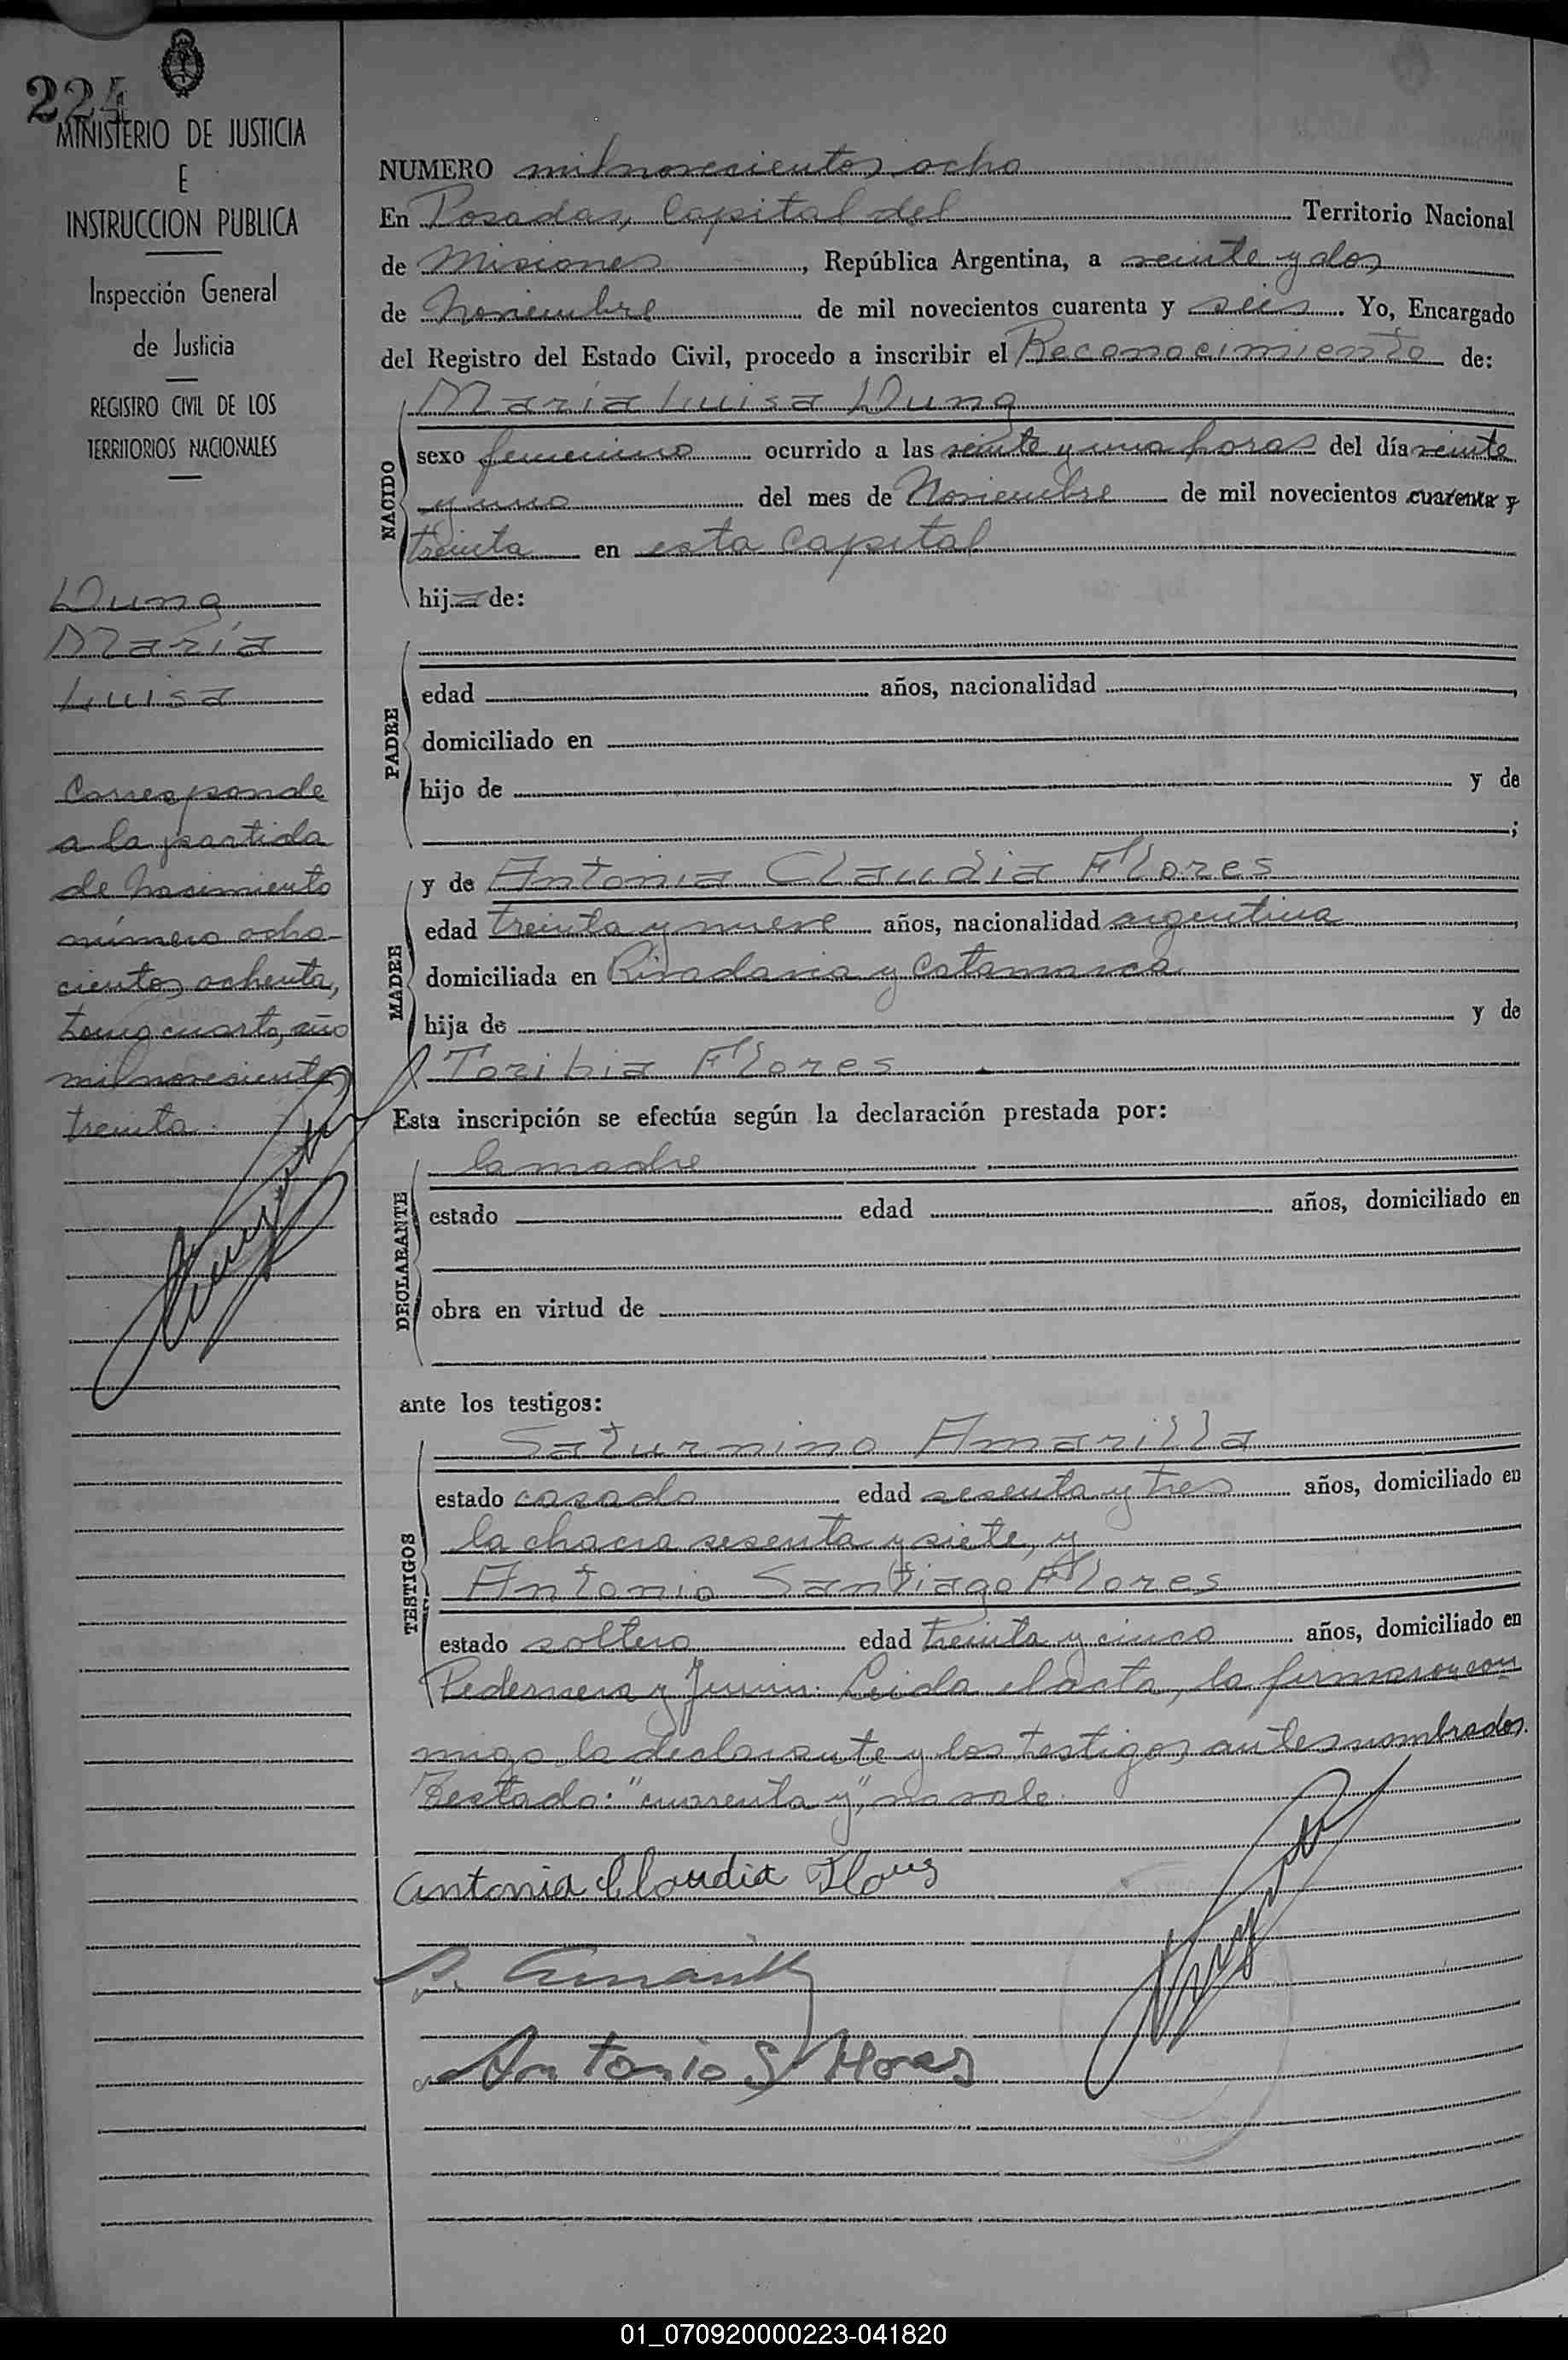 224
MINISTERIO DE JUSTICIA
E
INSTRUCCION PUBLICA
Inspección General
de Justicia
REGISTRO CIVIL DE LOS
TERRITORIOS NACIONALES
Dung
María
Luisa
Corresponde
a la partida
de Nacimiento
número ocho-
cientos ochenta,
tomo cuarto, año
mil novecientos
treinta.
NUMERO mil novecientos ocho
En Posadas, Capital del Territorio Nacional
de Misiones, República Argentina, a veinte y dos
de Noviembre de mil novecientos cuarenta y seis. Yo, Encargado
del Registro del Estado Civil, procedo a inscribir el Reconocimiento de:
NACIDO
María Luisa Dung
sexo femenino ocurrido a las veinte y una horas del día veinte
y uno del mes de Noviembre de mil novecientos cuarenta y
treinta en esta Capital
hija de:
PADRE
edad años, nacionalidad
domiciliado en
hijo de y de
;
MADRE
y de Antonia Claudia Flores
edad treinta y nueve años, nacionalidad argentina
domiciliada en Rivadavia y Catamarca
hija de y de
Toribia Flores
Esta inscripción se efectúa según la declaración prestada por:
DECLARANTE
la madre
estado edad años, domiciliado en
obra en virtud de
ante los testigos:
TESTIGOS
Saturnino Amarilla
estado casado edad sesenta y tres años, domiciliado en
la chacra sesenta y siete, y
Antonio Santiago Flores
estado soltero edad treinta y cinco años, domiciliado en
Pedernera y Junin. Leida el acta, la firmaron con
migo la declarante y los testigos antes nombrados.
Testado: "cuarenta y", no vale.
Antonia Claudia Flores
S. Amarilla
Antonio S Flores
01_070920000223-041820